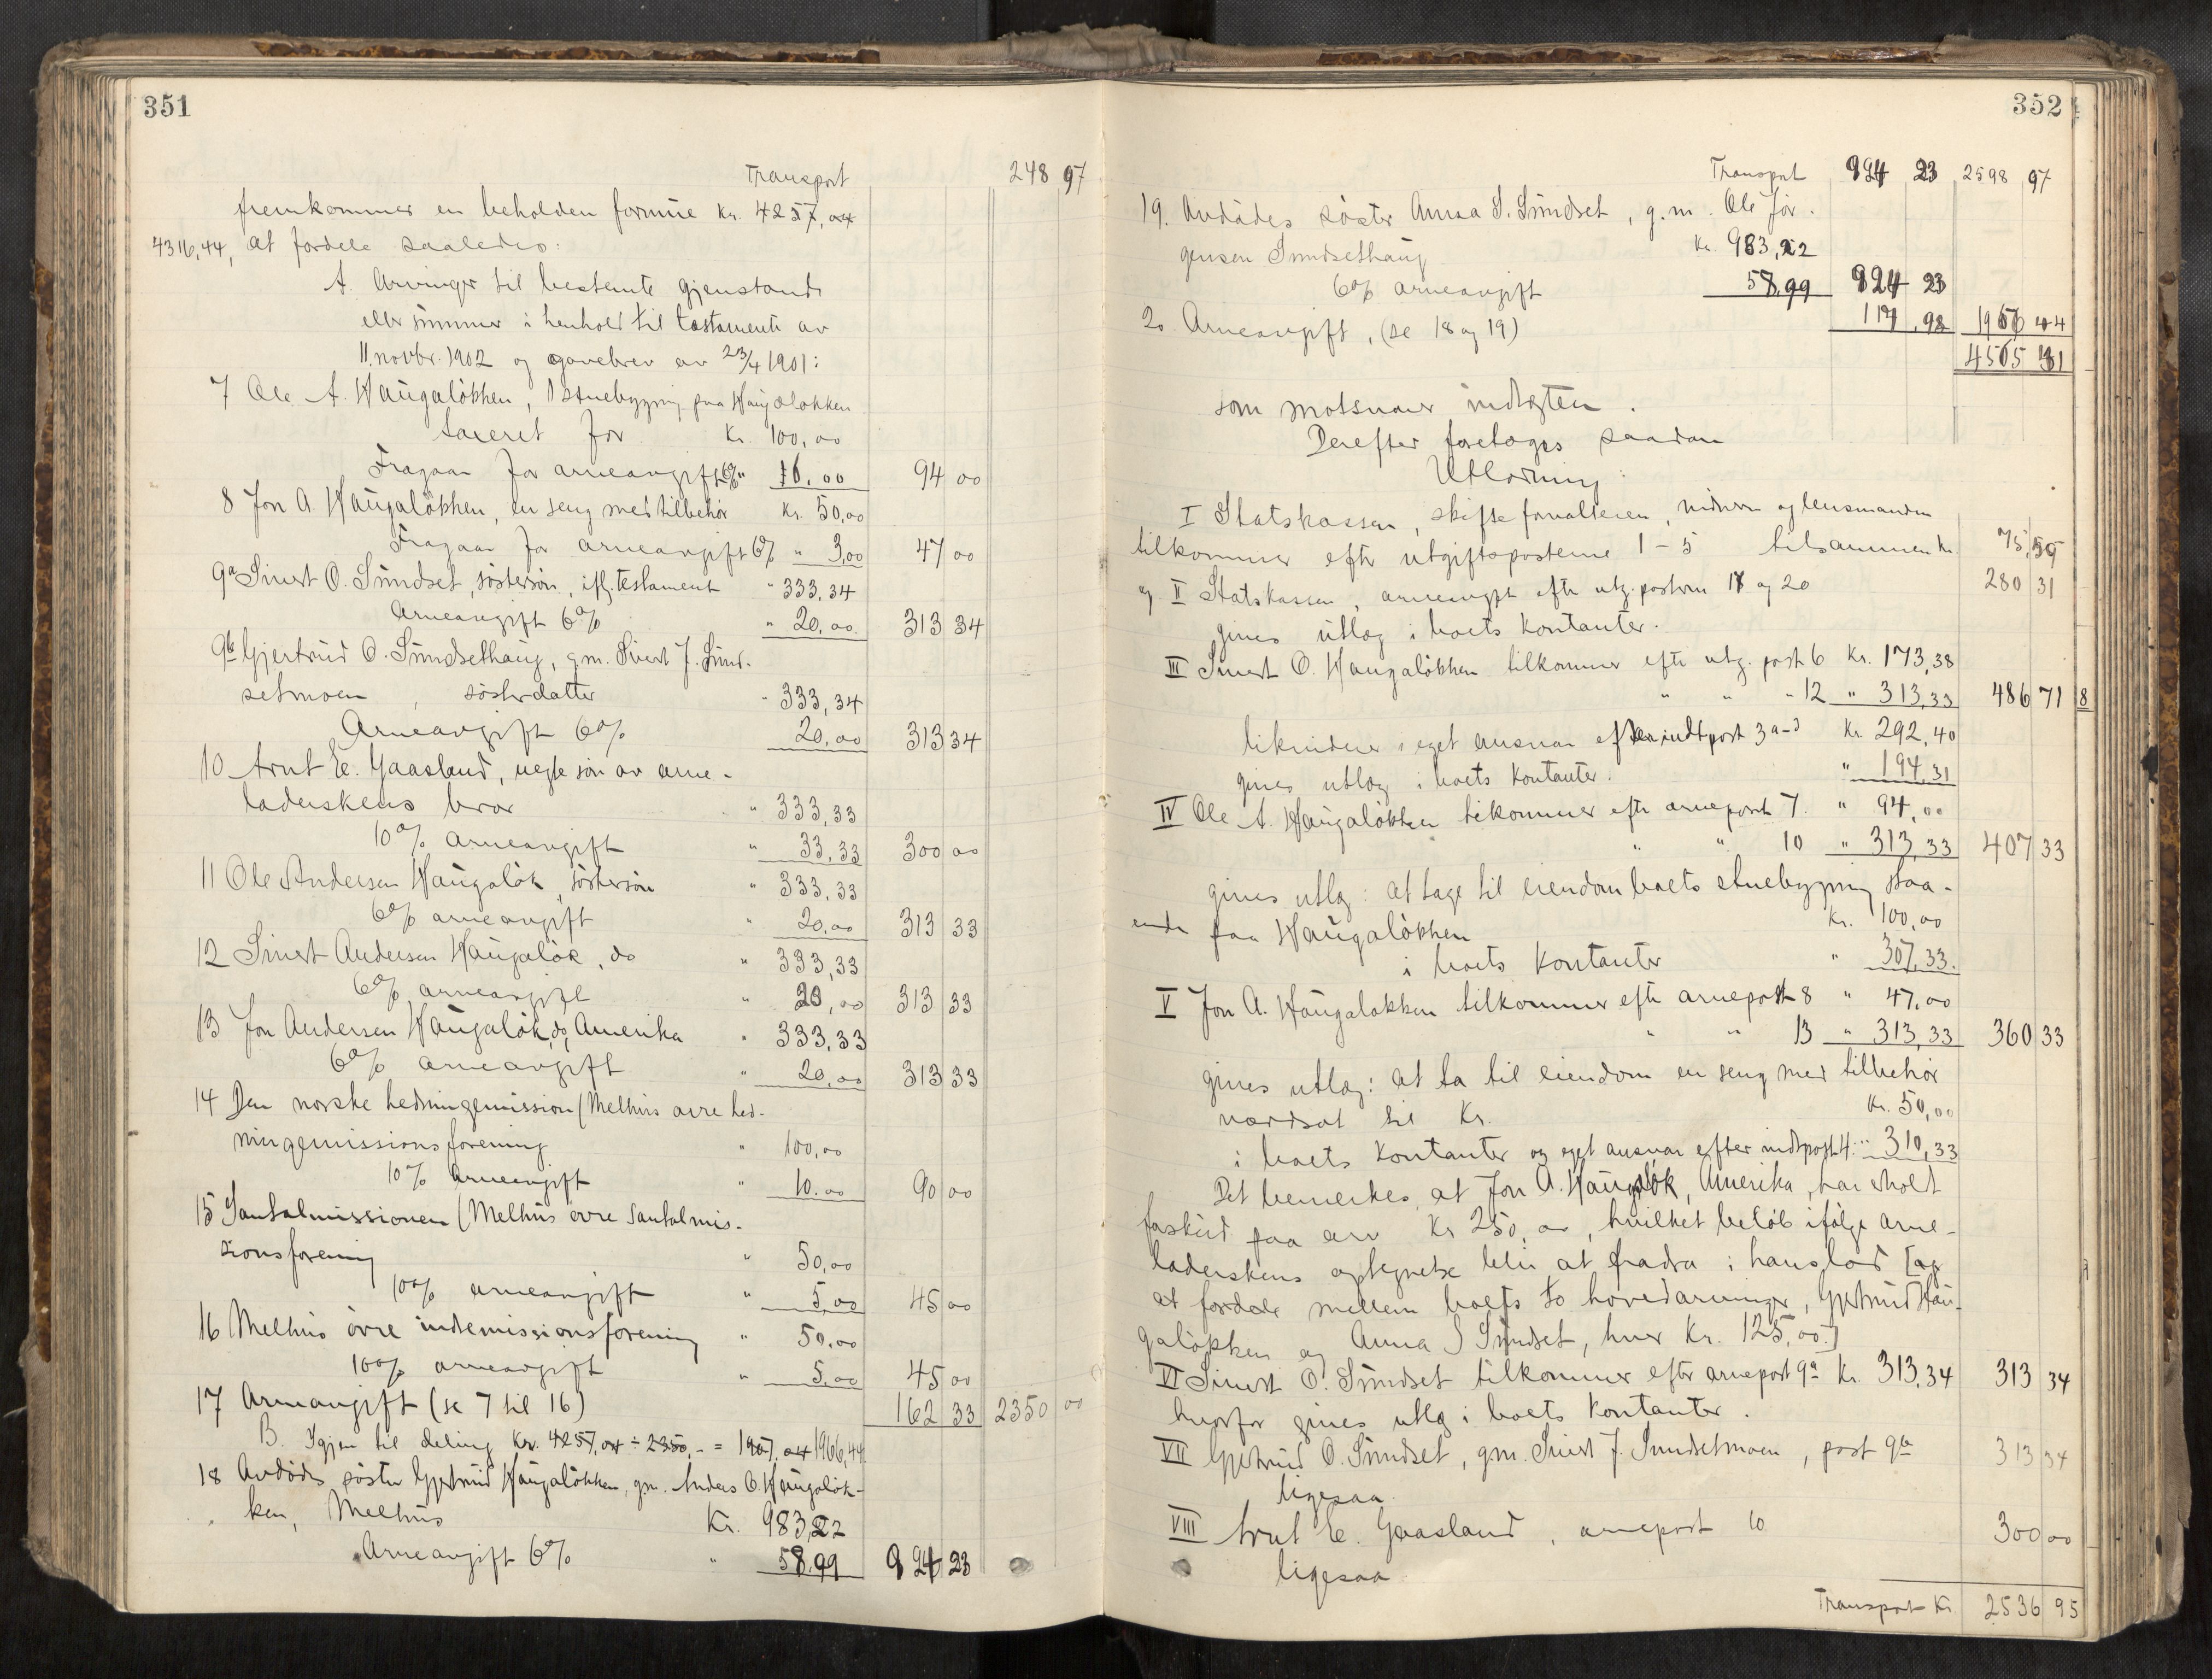 351
Transport 248 97
fremkommer en beholden formue kr. 4257,04
4316,44, at fordele saaledes:
A. Arvinger til bestemte gjenstande
eller summer i henhold til testamente av
11 novbr. 1902 og gavebrev av 23/4 1901:
7 Ole A. Haugaløkken, 1 stuebygning paa Haugaløkken
taxeret for Kr. 100,00
Fragaar for arveavgift 6% " 6,00 94 00
8 Jon A. Haugaløkken, en seng med tilbehør Kr. 50,00
Fragaar for arveavgift 6% " 3,00 47 00
9a Sivert O. Sundset, søstersøn, ifg. testament " 333,34
Arveavgift 6% " 20,00 313 34
9b Gjertrud O. Sundsethaug, g.m. Sivert J. Sund-
setmoen, søsterdatter " 333,34
Arveavgift 6% 20,00 313 34
10 Arnt E. Gaasland, uegte søn av arve-
laderskens bror " 333,33
10% arveavgift " 33,33 300 00
11 Ole Andersen Haugaløk, søstersøn " 333,33
6% arveavgift " 20,00 313 33
12 Sivert Andersen Haugaløk, do " 333,33
6% arveavgift " 20,00 313 33
13 Jon Andersen Haugaløk, do, Amerika " 333,33
6% arveavgift " 20,00 313 33
14 Den norske hedningemission (Melhus øvre hed-
ningemissionsforening " 100,00
10% arveavgift " 10.00 90 00
15 Santalmissionen (Melhus øvre Santalmis-
sionsforening " 50,00
10% arveavgift " 5,00 45 00
16 Melhus øvre indremissionsforening " 50,00
10% arveavgift " 5,00 45 00
17 Arveavgift (se 7 til 16) 162 33 2350 00
B. Igjen til deling Kr. 4257,04 ÷ 2350,- = 1907,04 1966,44
18 Avdødes søster Gjertrud Haugaløkken, gm. Anders O. Haugaløk-
ken, Melhus Kr. 983,22
Arveavgift 6% " 58,99 924 23
352
Transport 924 23 2598 97
19. Avdødes søster Anna S. Sundset, g.m. Ole Jør-
gensen Sundsethaug Kr. 983,22
6% arveavgift 58,99 924 23
20 Arveavgift, (se 18 og 19) 117,98 1966 44
4565 41
som motsvarer indtægten.
Derefter foretages saadan
Utlodning:
I Statskassen, skifteforvalteren, vidner og lensmanden
tilkommer efter utgiftsposterne 1-5 tilsammen kr. 75,59
og II Statskassen, arveavgift efter utg.posterne 17 og 20 280 31
gives utlæg i boets kontanter.
III Sivert O. Haugaløkken tilkommer efter utg. post 6 Kr. 173,38
" " " 12 " 313,33 486 71 8
likviderer i eget ansvar efter indt.post 3 a-d Kr. 292,40
gives utlæg i boets kontanter. " 194,31
IV Ole A. Haugaløkken tilkommer efter arvepost 7. " 94,00
" " 10 " 313,33 407 33
gives utlæg: at tage til eiendom boets stuebygning staa-
ende paa Haugaløkken Kr. 100,00
i boets kontanter " 307,33.
V Jon A. Haugaløkken tilkommer efter arvepost 8 " 47,00
" " 13 " 313,33 360 33
gives utlæg: at ta til eiendom en seng med tilbehør
værdsat til Kr. Kr. 50,00
i boets kontanter og eget ansvar efter indt.post 4: " 310,33
Det bemerkes, at Jon A. Haugaløk, Amerika, har erholdt
forskud paa arv Kr 250,00, hvilket beløb ifølge arve-
laderskens optegnelse blir at fradra i hans lod [og
at fordele mellem boets to hovedarvinger, Gjertrud Hau-
galøkken og Anna S Sundset, hver Kr. 125,00.]
VI Sivert O. Sundset tilkommer efter arvepost 9a Kr. 313,34 313 34
hvorfor gives utlæg i boets kontanter.
VII Gjertrud O. Sundset, gm. Sivert J. Sundsetmoen, post 9b 313 34
ligesaa
VIII Arnt E. Gaasland, arvepost 10 300 00
ligesaa
Transport Kr 2536 95